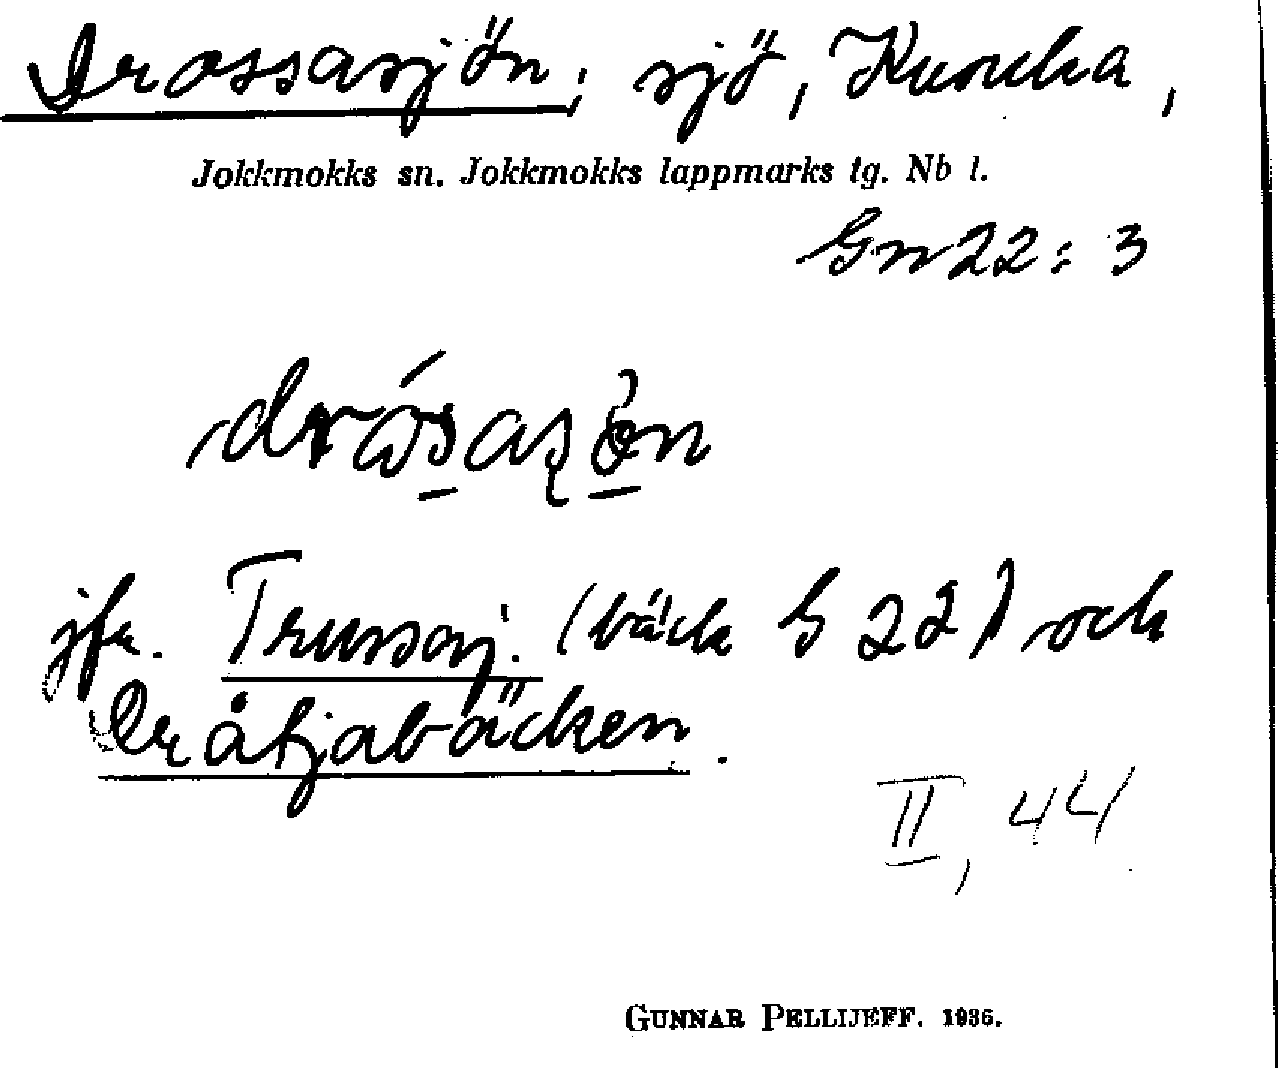 Drossasjön, sjö, Kuouka,
Jokkmokks sn. Jokkmokks lappmarks tg. Nb l.
Gn 22:3
jfr. Trussaj. (bäck G 22) och
Dråtjabäcken.
II, 44
GUNNAR PELLIJEFF. 1936.